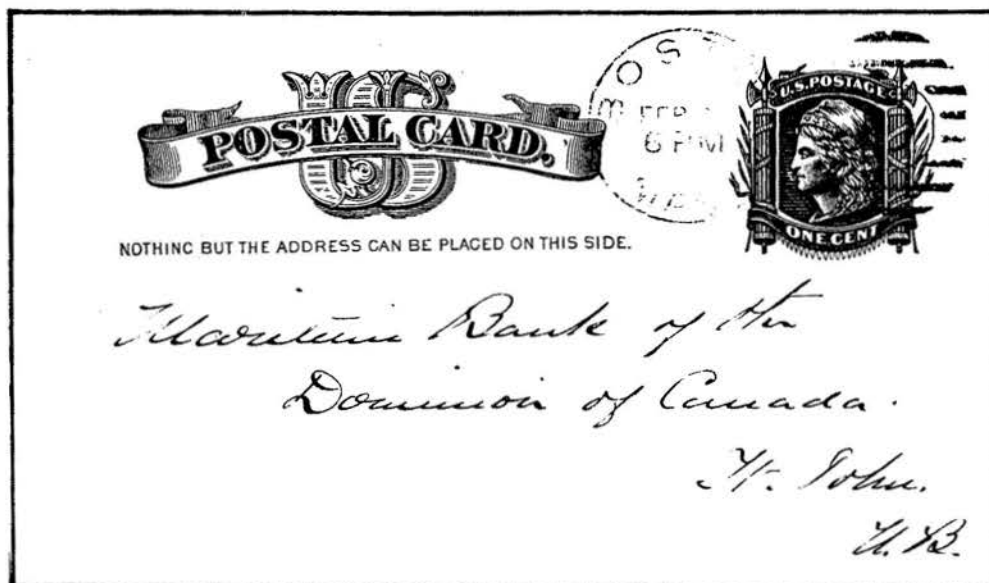 U.S. POSTAGE
POSTAL CARD.
FEB
6 PM
ONE CENT
NOTHING BUT THE ADDRESS CAN BE PLACED ON THIS SIDE.
Maritime Bank of the
Dominion of Canada.
St. John.
N.B.